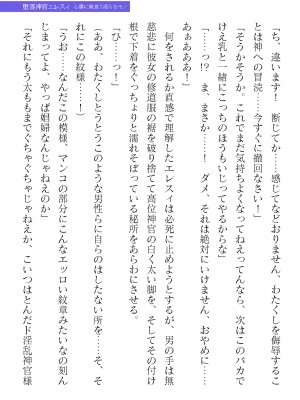 堕落神官エレスィ 心構に刻まで堕ちたモノ
「ち、違います！ 断じてか……感じてなどおりません、わたくしを侮辱するこ
とは神への冒涜……今すぐに撤回なさい！」
「そうかそうか。これでまだ気持ちよくなってねえってんなら、次はこのバカで
けえ乳と一緒にこっちのほうもいじってやるからな」
「……っ!? ま、まさか……！ ダメ、それは絶対にいけません、おやめに……
あああああ！」
何をされるか直感で理解したエレスィは必死に止めようとするが、男の手は無
慈悲に彼女の修道服の裾を破り捨てて高位神官の白く太い脚を、そしてその付け
根で下着をぐっちょりと濡れそぼっている秘所をあらわにさせる。
「ひ……っ！」
（ああ、わたくしとうとうこのような男性らに自らのはしたない所を……そ、そ
れにこの紋様……！）
「うお……なんだこの模様、マンコの部分にこんなエッロい紋章みたいなの刻ん
じまってよ、やっぱ娼婦なんじゃねえのか」
「それにもう太ももまでぐちゃぐちゃじゃねえか、こいつはとんだド淫乱神官様